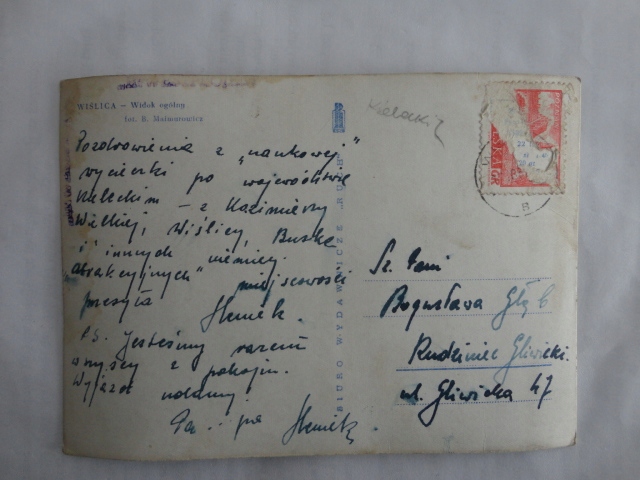 WIŚLICA – Widok ogólny
fot. R. Malmurowicz
Pozdrowienia z „naukowej"
wycieczki po województwie
kieleckim – z Kazimierzy
Wielkiej, Wiślicy, Buska
i innych niemniej
„atrakcyjnych" miejscowości
przesyła Heniek.
P.S. Jesteśmy razem
wszyscy z pokoju.
Wyjazd udany.
Pa.. pa Heniek.
BIURO WYDAWNICZE „RUCH"
Kielecki
Sz. Pani
Bogusława Głąb
Rudziniec Gliwicki.
ul. Gliwicka 47